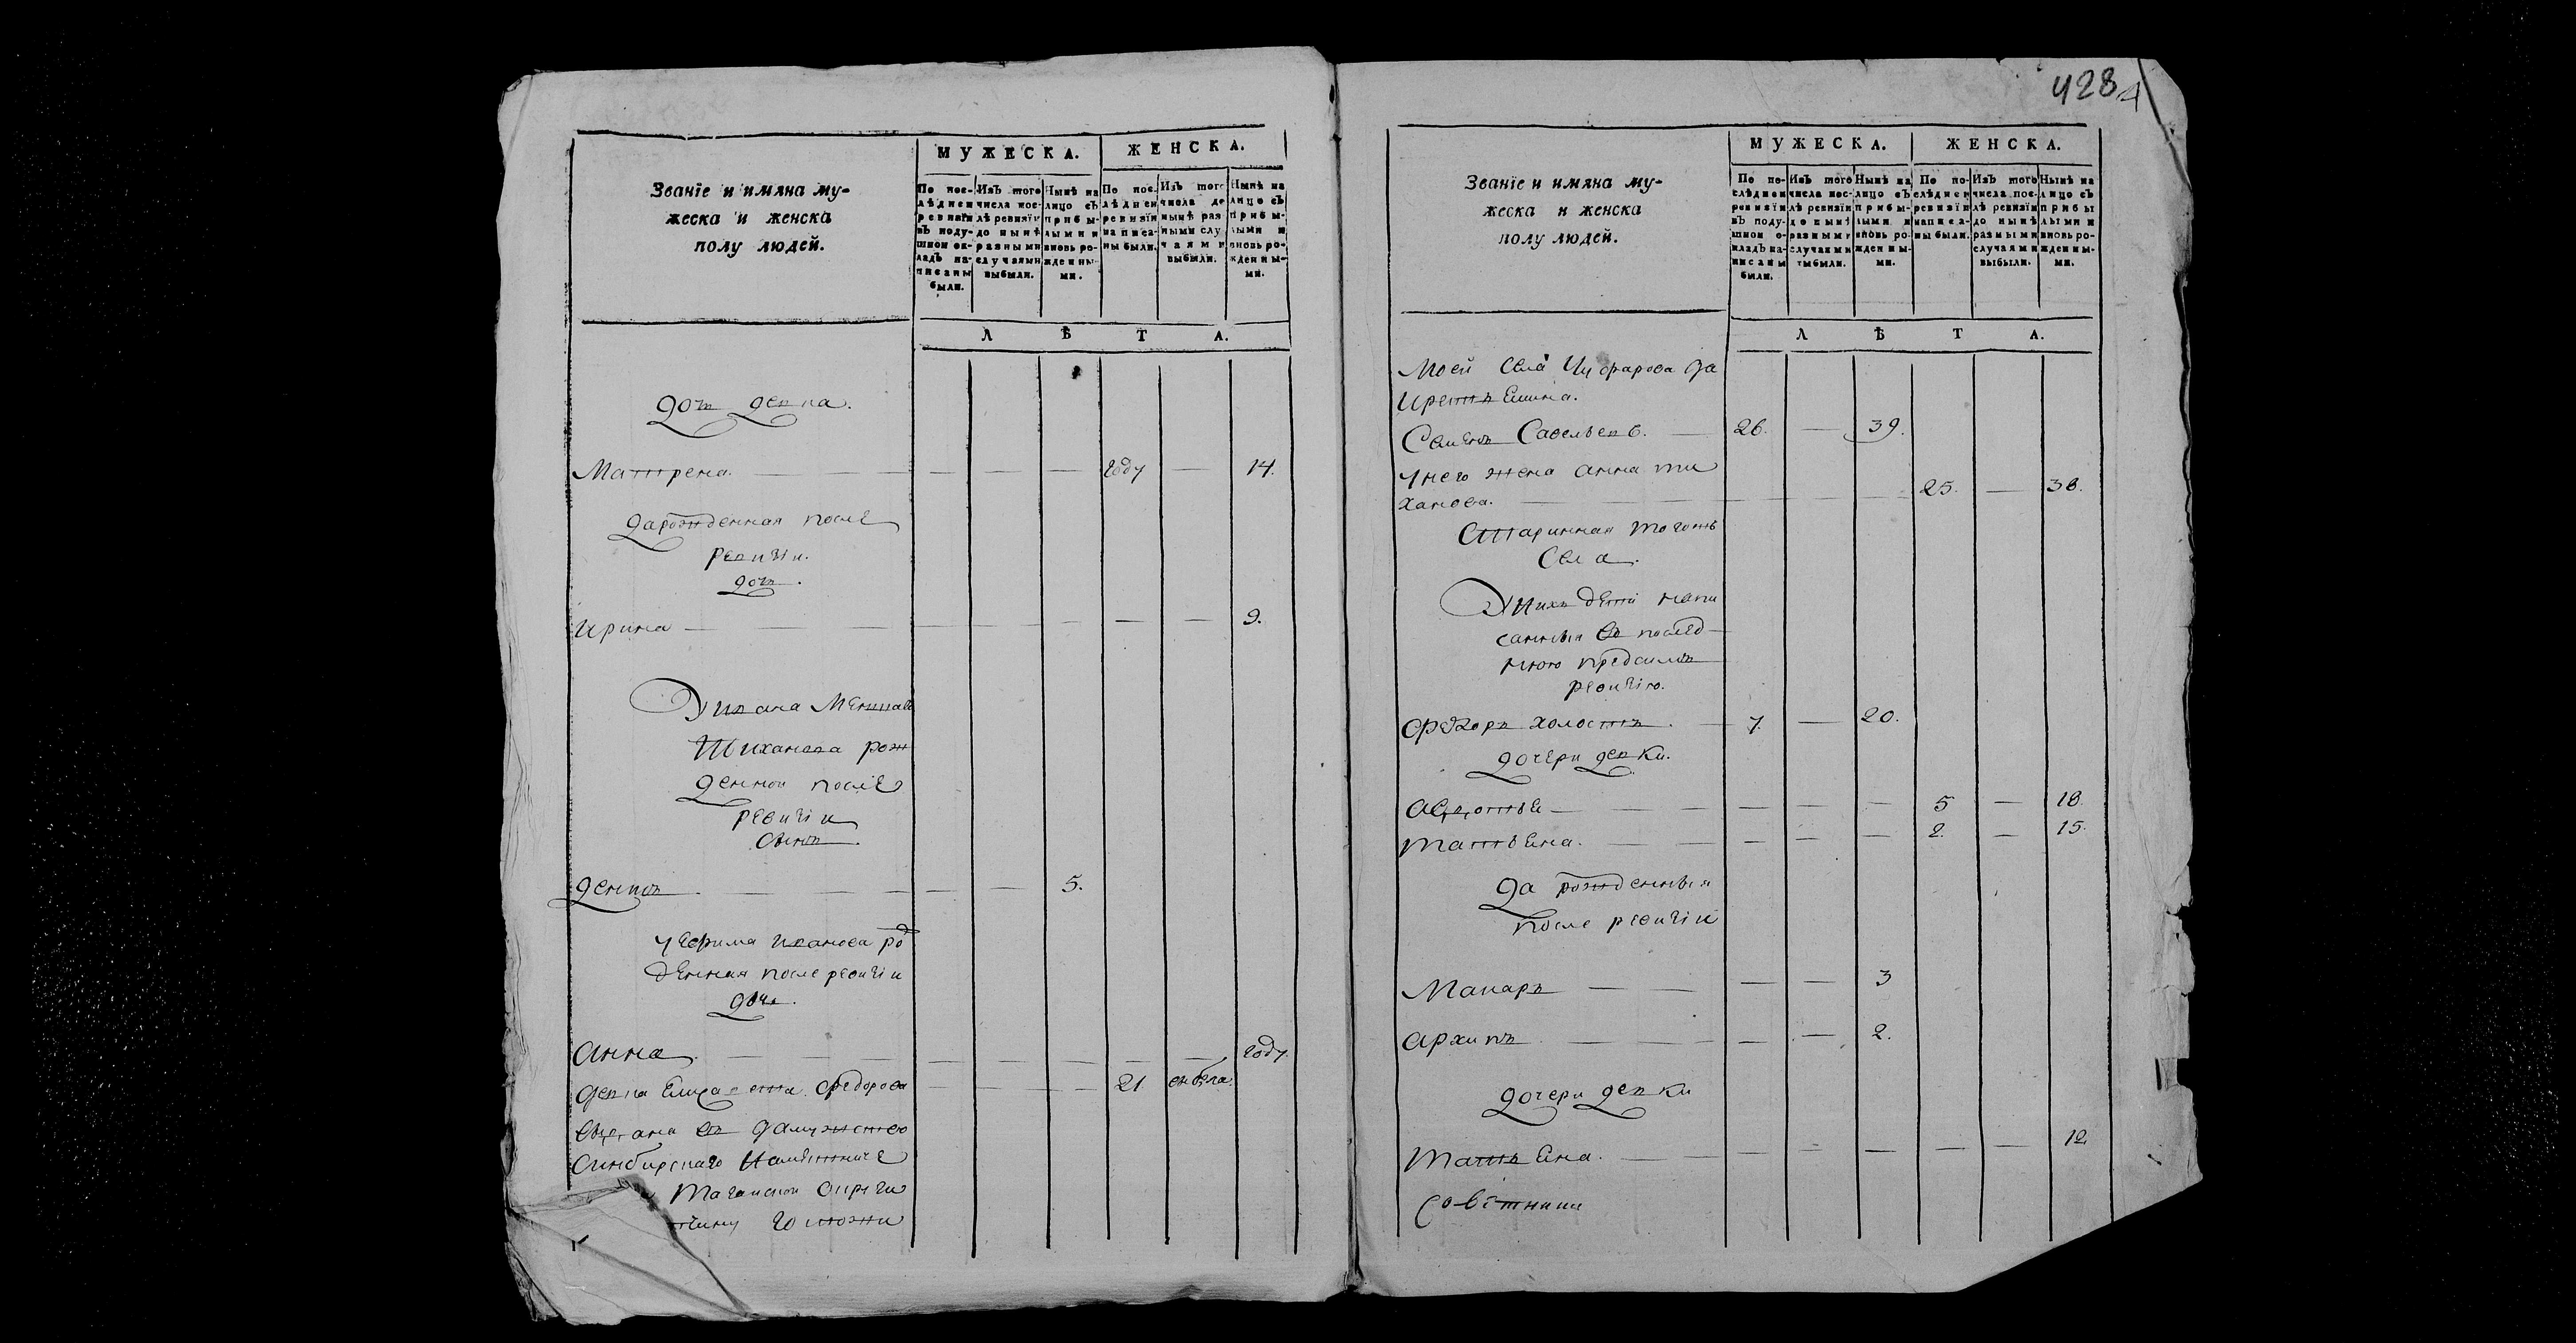 428
Званїе и имяна му-
жеска и женска
полу людей.
МУЖЕСКА.
ЖЕНСКА.
По пос-
лѣднеи
ревизїи
въ поду-
шнои ок-
ладъ на-
писаны
были.
Изъ того
числа пос-
лѣ ревизїи
до нынѣ
разными
случаями
выбыли.
Нынѣ на
лицо съ
прибы-
лыми и
вновь ро-
жденны-
ми.
По пос-
лѣднеи
ревизїи
написа-
ны были.
Изъ того
числа до
нынѣ раз
ными слу
чаями
выбыли.
Нынѣ на
лицо съ
прибы-
лыми и
вновь ро-
жденны-
ми.
Л Ѣ Т А.
дочь девка.
Матрена. году 14.
да рожденная после
ревизіи
дочь.
Ирина 9.
тиханова рож
денной после
ревизіи
сынъ.
5.
у ефима иванова ро
денная после ревизіи
дочь.
Анна году.
девка Елисавета федорова 21
въ замужство
синбирскаго намѣстниче
округи
Званїе и имяна му-
жеска и женска
полу людей.
МУЖЕСКА.
ЖЕНСКА.
По по-
слѣднеи
ревизїи
въ поду-
шнои о-
кладъ на-
писаны
были.
Изъ того
числа пос-
лѣ ревизїи
до нынѣ
разными
случаями
выбыли.
Нынѣ на
лицо съ
прибы-
лыми и
вновь ро-
жденны-
ми.
По по-
слѣднеи
ревизїи
написа-
ны были.
Изъ того
числа пос-
лѣ ревизїи
до нынѣ
разными
случаями
выбыли.
Нынѣ на
лицо съ
прибы
лыми и
вновь ро-
жденны-
ми.
Л Ѣ Т А.
моей села Чуфарова да
Семенъ Савельевъ. 26. 39.
у него жена анна ти
ханова. 25. 38.
старинная тогожъ
села.
У нихъ дети напи
санныя въ послед
нюю предъ симъ
ревизію.
Федоръ холостъ. 7. 20.
дочери девки.
Авдотья 5 18.
Татьяна. 2. 15.
да рожденныя
после ревизіи
Макаръ 3
Архипъ 2.
дочери девки
Татьяна. 12
Совѣтникъ